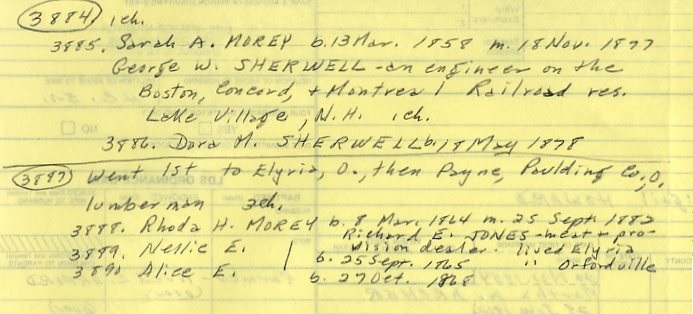 3884) 1 ch.
3885. Sarah A. MOREY b. 13 Mar. 1858 m. 18 Nov. 1877
George W. SHERWELL - an engineer on the
Boston, Concord, + Montreal Railroad res.
Lake Village, N.H. 1 ch.
3886. Dora M. SHERWELL b. 18 May 1878
3887) went 1st to Elyria, O., then Payne, Paulding Co., O.
lumberman 3 ch.
3888. Rhoda H. MOREY b. 8 Mar. 1864 m. 25 Sept. 1882
Richard E. JONES - meat + pro-
vision dealer. lived Elyria
3889. Nellie E. b. 25 Sept. 1865 " Orfordville
3890 Alice E. b. 27 Oct. 1868